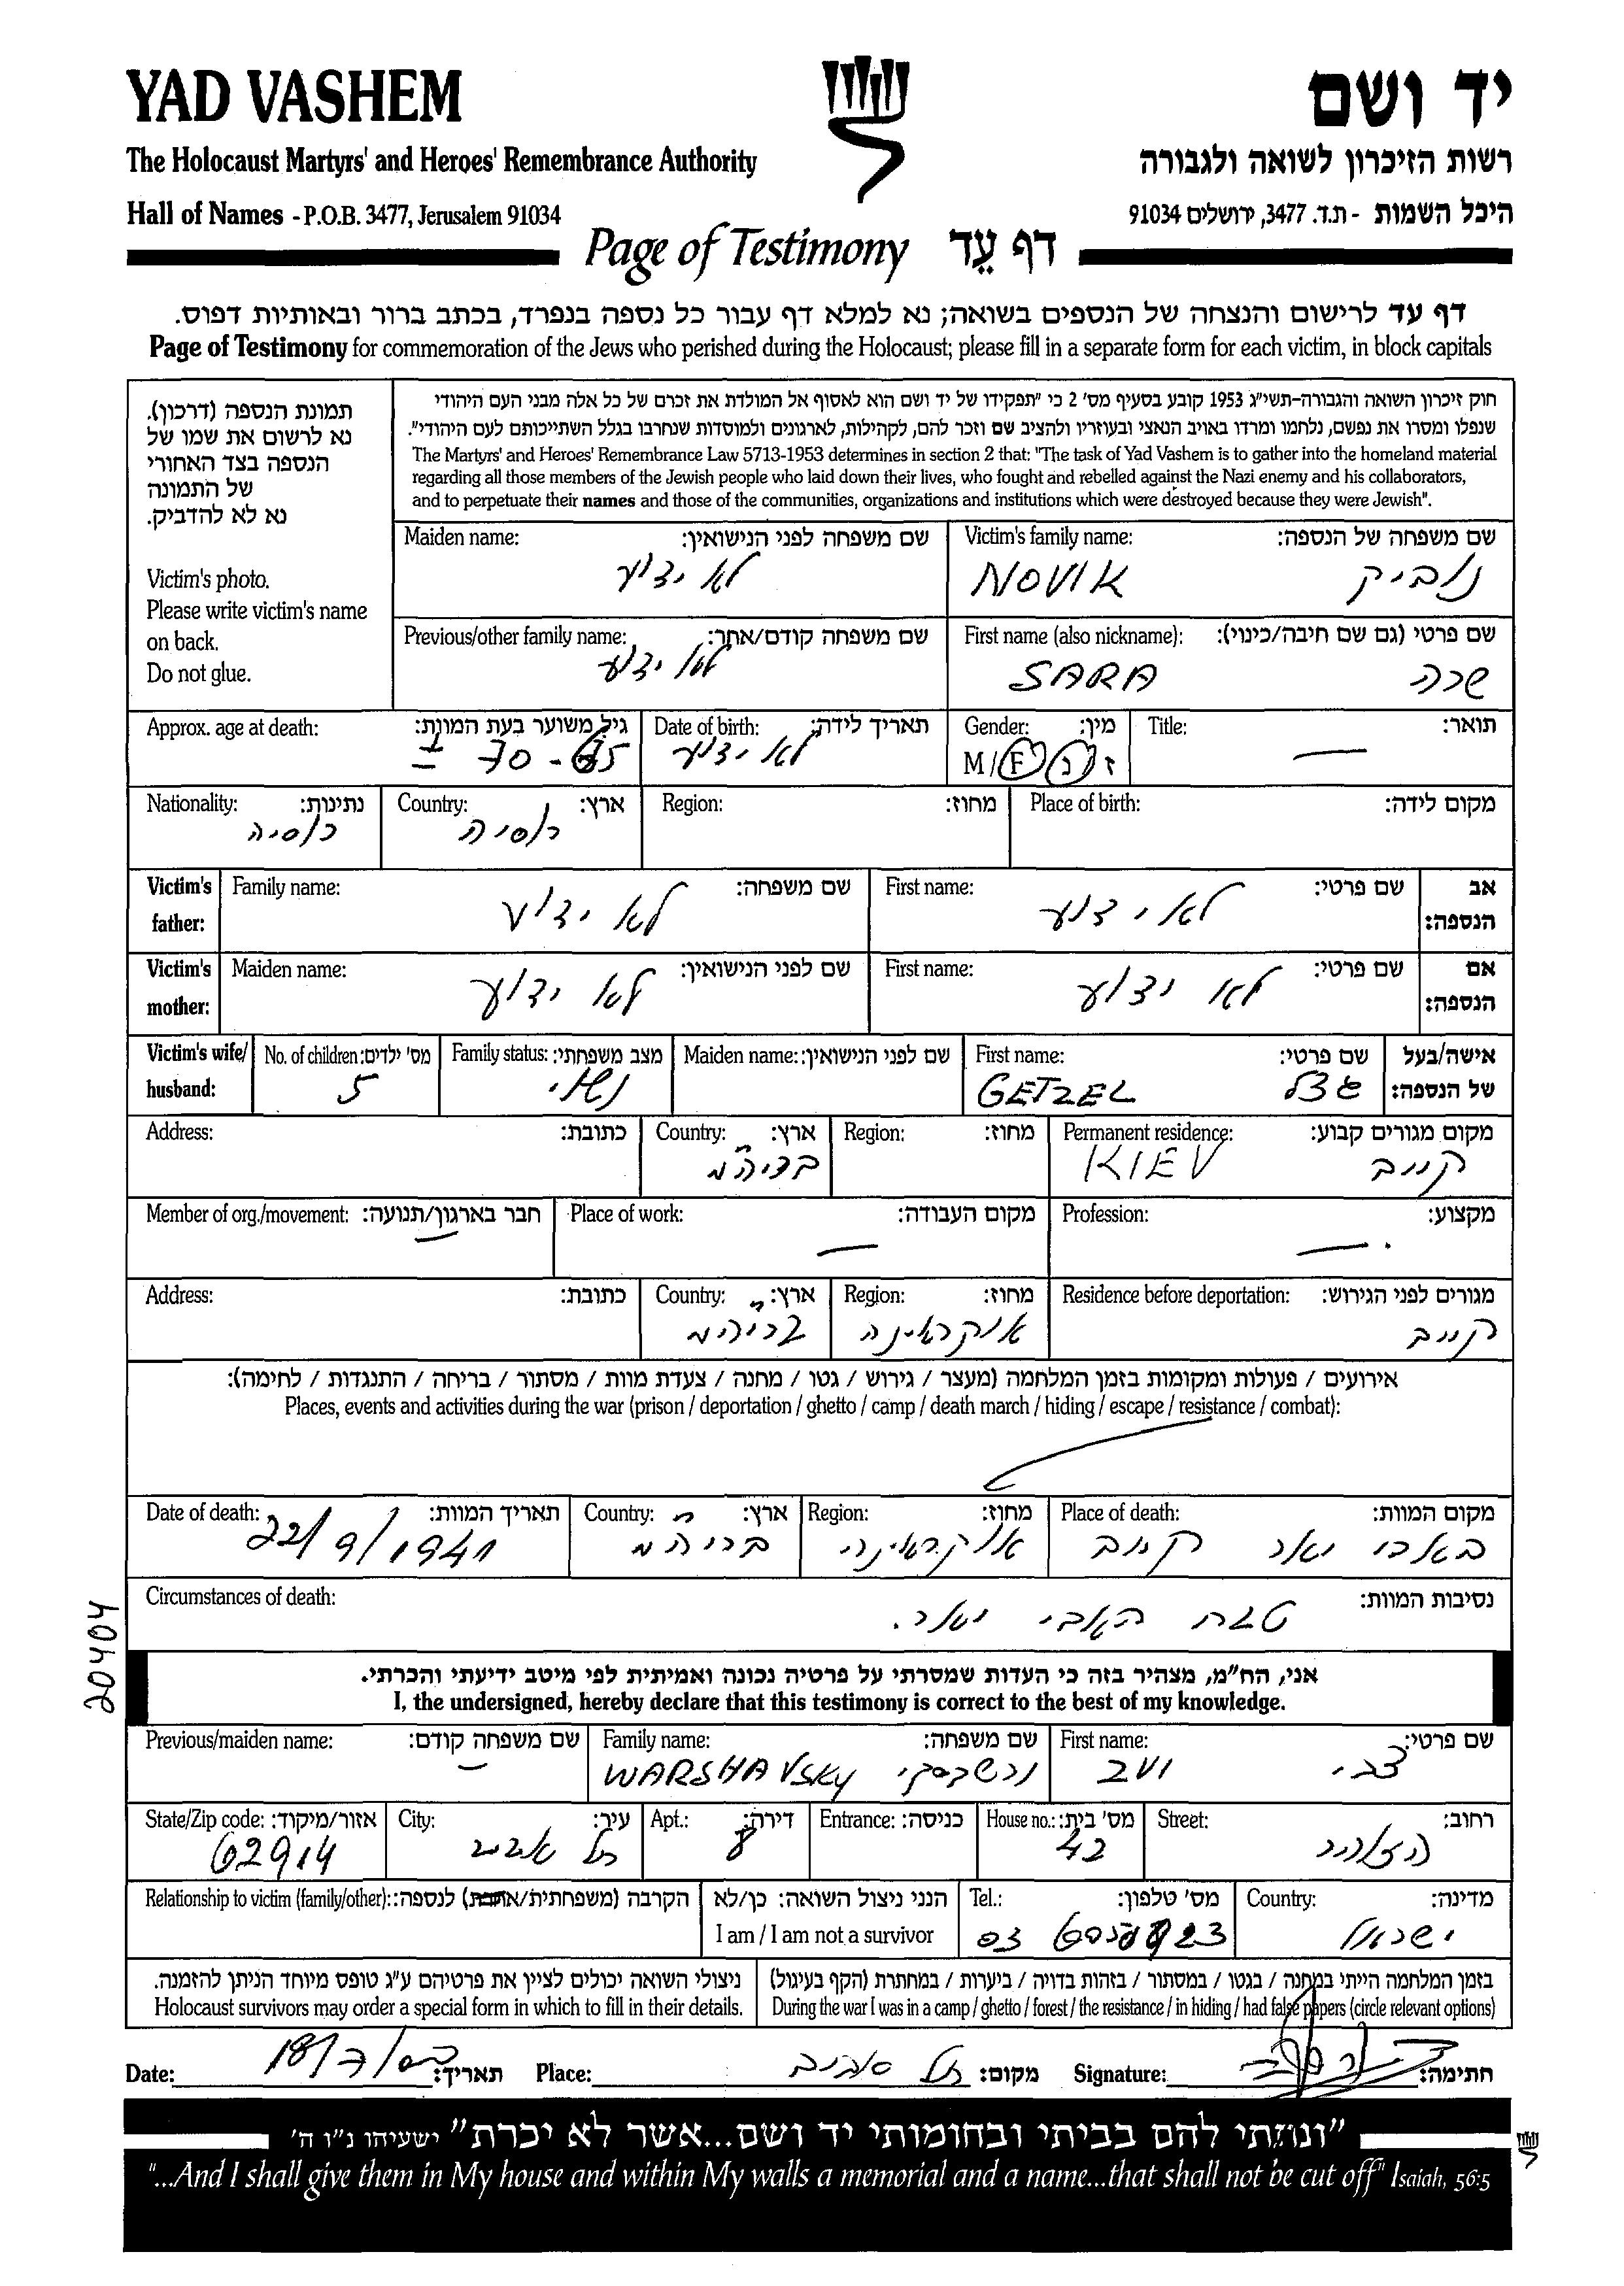 YAD VASHEM
יד ושם
The Holocaust Martyrs' and Heroes' Remembrance Authority
רשות הזיכרון לשואה ולגבורה
Hall of Names - P.O.B. 3477, Jerusalem 91034
היכל השמות - ת.ד. 3477, ירושלים 91034
Page of Testimony דף עֵד
דף עד לרישום והנצחה של הנספים בשואה; נא למלא דף עבור כל נספה בנפרד, בכתב ברור ובאותיות דפוס.
Page of Testimony for commemoration of the Jews who perished during the Holocaust; please fill in a separate form for each victim, in block capitals
תמונת הנספה (דרכון).
נא לרשום את שמו של
הנספה בצד האחורי
של התמונה
נא לא להדביק.
Victim's photo.
Please write victim's name
on back.
Do not glue.
חוק זיכרון השואה והגבורה-תשי"ג 1953 קובע בסעיף מס' 2 כי "תפקידו של יד ושם הוא לאסוף אל המולדת את זכרם של כל אלה מבני העם היהודי
שנפלו ומסרו את נפשם, נלחמו ומרדו באויב הנאצי ובעוזריו ולהציב שם וזכר להם, לקהילות, לארגונים ולמוסדות שנחרבו בגלל השתייכותם לעם היהודי".
The Martyrs' and Heroes' Remembrance Law 5713-1953 determines in section 2 that: "The task of Yad Vashem is to gather into the homeland material
regarding all those members of the Jewish people who laid down their lives, who fought and rebelled against the Nazi enemy and his collaborators,
and to perpetuate their names and those of the communities, organizations and institutions which were destroyed because they were Jewish".
Victim's family name: שם משפחה של הנספה:
NOVIK נוביק
Maiden name: שם משפחה לפני הנישואין:
לא ידוע
First name (also nickname): שם פרטי (גם שם חיבה/כינוי):
SARA שרה
Previous/other family name: שם משפחה קודם/אחר:
לא ידוע
Title: תואר:
—
Gender: מין:
M/F ז/נ
Date of birth: תאריך לידה:
לא ידוע
Approx. age at death: גיל משוער בעת המוות:
± 70 - 65
Place of birth: מקום לידה:
Region: מחוז:
Country: ארץ:
רוסיה
Nationality: נתינות:
רוסיה
Victim's father: אב הנספה:
First name: שם פרטי:
לא ידוע
Family name: שם משפחה:
לא ידוע
Victim's mother: אם הנספה:
First name: שם פרטי:
לא ידוע
Maiden name: שם לפני הנישואין:
לא ידוע
Victim's wife/husband: אישה/בעל של הנספה:
First name: שם פרטי:
GETZEL געצל
Maiden name: שם לפני הנישואין:
Family status: מצב משפחתי:
נשוי
No. of children: מס' ילדים:
5
Permanent residence: מקום מגורים קבוע:
KIEV קייב
Region: מחוז:
Country: ארץ:
בריה"מ
Address: כתובת:
Profession: מקצוע:
—
Place of work: מקום העבודה:
—
Member of org./movement: חבר בארגון/תנועה:
—
Residence before deportation: מגורים לפני הגירוש:
קייב
Region: מחוז:
אוקראינה
Country: ארץ:
בריה"מ
Address: כתובת:
אירועים / פעולות ומקומות בזמן המלחמה (מעצר / גירוש / גטו / מחנה / צעדת מוות / מסתור / בריחה / התנגדות / לחימה):
Places, events and activities during the war (prison / deportation / ghetto / camp / death march / hiding / escape / resistance / combat):
Place of death: מקום המוות:
באבי יאר קייב
Region: מחוז:
אוקראינה
Country: ארץ:
בריה"מ
Date of death: תאריך המוות:
22/9/1941
Circumstances of death: נסיבות המוות:
טבח באבי יאר.
20404
אני, הח"מ, מצהיר בזה כי העדות שמסרתי על פרטיה נכונה ואמיתית לפי מיטב ידיעתי והכרתי.
I, the undersigned, hereby declare that this testimony is correct to the best of my knowledge.
First name: שם פרטי:
ZVI צבי
Family name: שם משפחה:
WARSHAVSKY ורשבסקי
Previous/maiden name: שם משפחה קודם:
—
Street: רחוב:
House no.: מס' בית:
42
Entrance: כניסה:
Apt.: דירה:
8
City: עיר:
תל אביב
State/Zip code: אזור/מיקוד:
62914
Country: מדינה:
ישראל
Tel.: מס' טלפון:
03
הנני ניצול השואה: כן/לא
I am / I am not a survivor
Relationship to victim (family/other): הקרבה (משפחתית/אחרת) לנספה:
בזמן המלחמה הייתי במחנה / בגטו / במסתור / בזהות בדויה / ביערות / במחתרת (הקף בעיגול)
During the war I was in a camp / ghetto / forest / the resistance / in hiding / had false papers (circle relevant options)
ניצולי השואה יכולים לציין את פרטיהם ע"ג טופס מיוחד הניתן להזמנה.
Holocaust survivors may order a special form in which to fill in their details.
Date: תאריך: Place: תל אביב מקום: Signature: חתימה:
"ונתתי להם בביתי ובחומותי יד ושם...אשר לא יכרת" ישעיהו נ"ו ה'
"...And I shall give them in My house and within My walls a memorial and a name...that shall not be cut off" Isaiah, 56:5